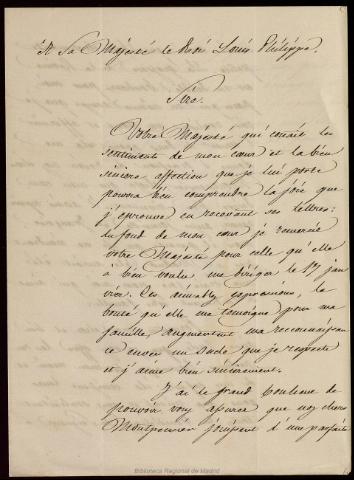 A Sa Majesté le Roi Louis Philippe.
Sire.
Votre Majesté qui connait les
sentiments de mon cœur et la bien
sincère affection que je lui porte
pourra bien comprendre la joie que
j'éprouve en recevant ses lettres:
du fond de mon cœur je remercie
votre Majesté pour celle qu'elle
à bien voulu me diriger le 17 jan
vier. Ces aimables expressions, la
bonté qu'elle me temoigne pour ma
famille, augmentent ma reconnaissan
ce envers un oncle que je respecte
et j'aime bien sincèrement.
J'ai le grand bonheur de
pouvoir vous assurer que nos chers
Montpensier jouissent d'une parfaite
Biblioteca Regional de Madrid